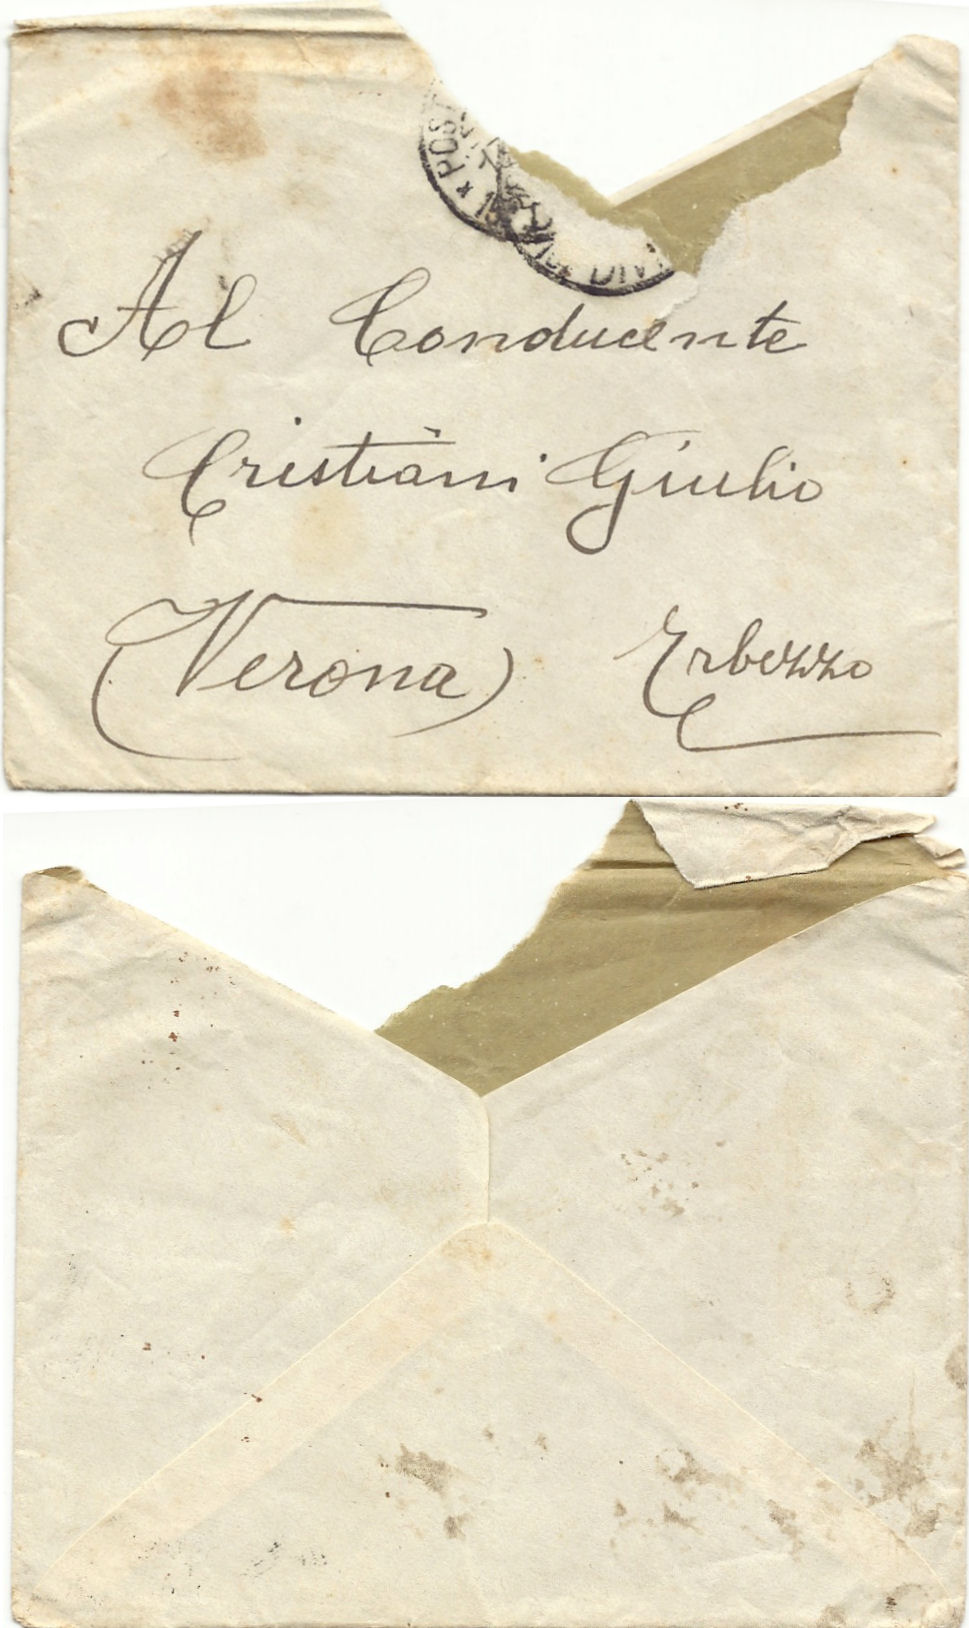 POST
Al Conducente
Cristiani Giulio
(Verona) Erbezzo